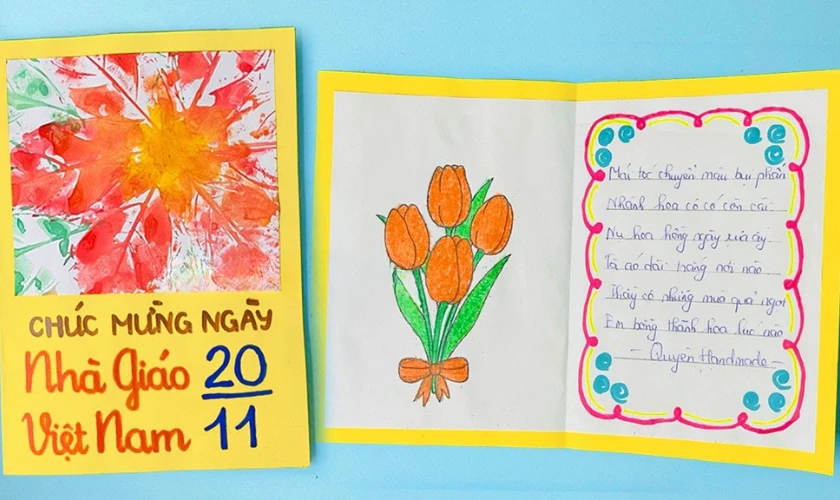 CHÚC MỪNG NGÀY
Nhà Giáo
Việt Nam
20
11
Mái tóc chuyển màu bụi phấn
Nhành hoa cô có còn cài
Nụ hoa hồng ngày xưa ấy
Tà áo dài trắng nơi nào
Thầy cô những mùa quả ngọt
Em bỗng thành hoa lúc nào
- Quyên Handmade -